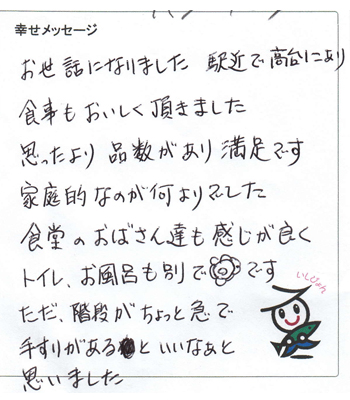 幸せメッセージ
お世話になりました 駅近で高台にあり
食事もおいしく頂きました
思ったより品数があり満足です
家庭的なのが何よりでした
食堂のおばさん達も感じが良く
トイレ、お風呂も別で です
いしぴょん
ただ、階段がちょっと急で
手すりがある といいなぁと
思いました